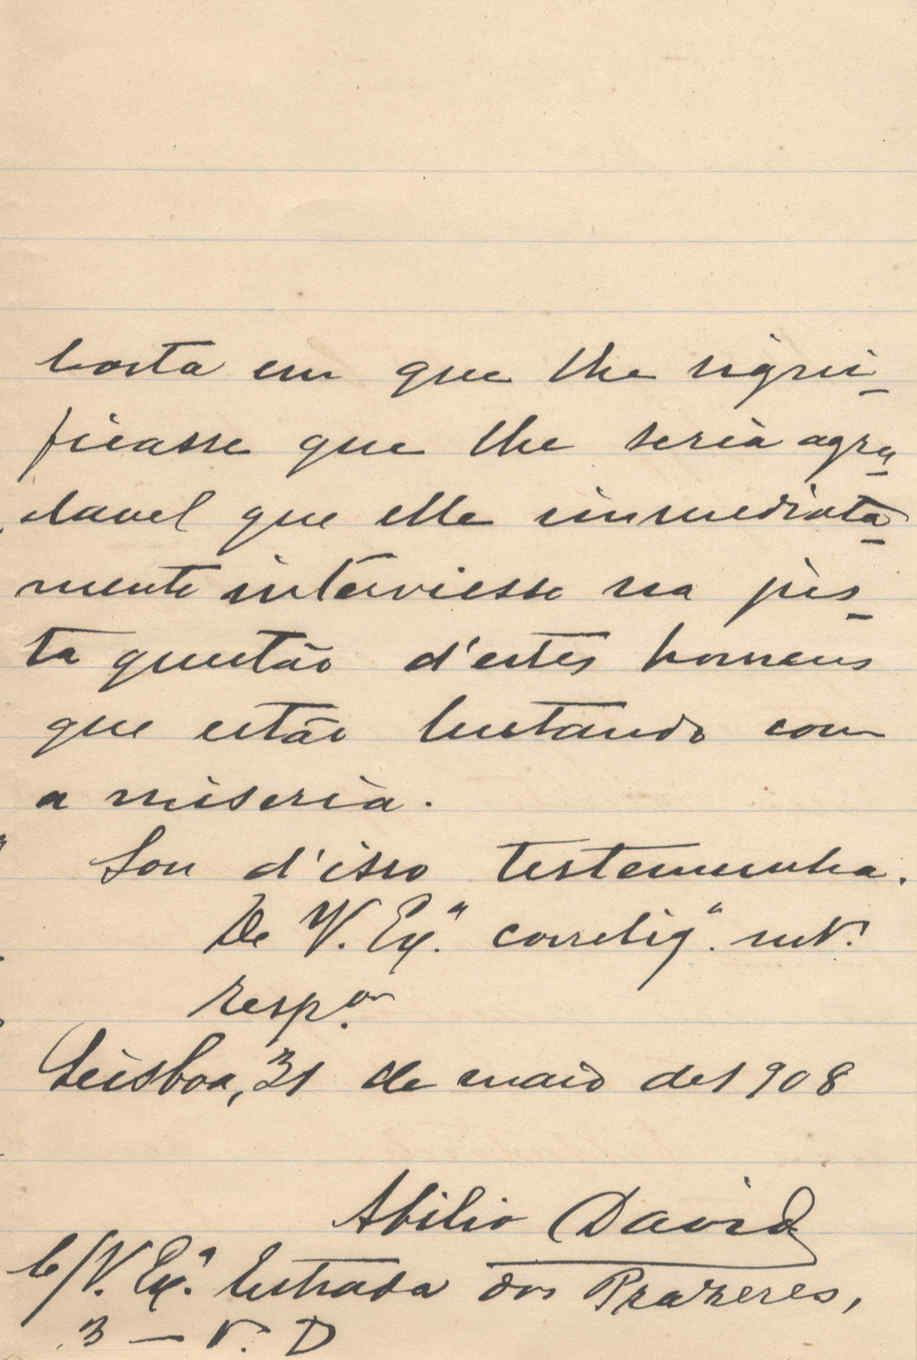 Costa em que lhe signi-
ficasse que lhe seria agra-
davel que elle immediata-
mente interviesse na jus-
ta questão d'estes homens
que estão luctando com
a miseria.
Sou d'isso testemunha.
De V. Ex.ª correlig.º mt.º
resp.or
Lisboa, 31 de maio de 1908
Abilio David
C/V. Ex.ª Estrada dos Prazeres,
3 — r. D